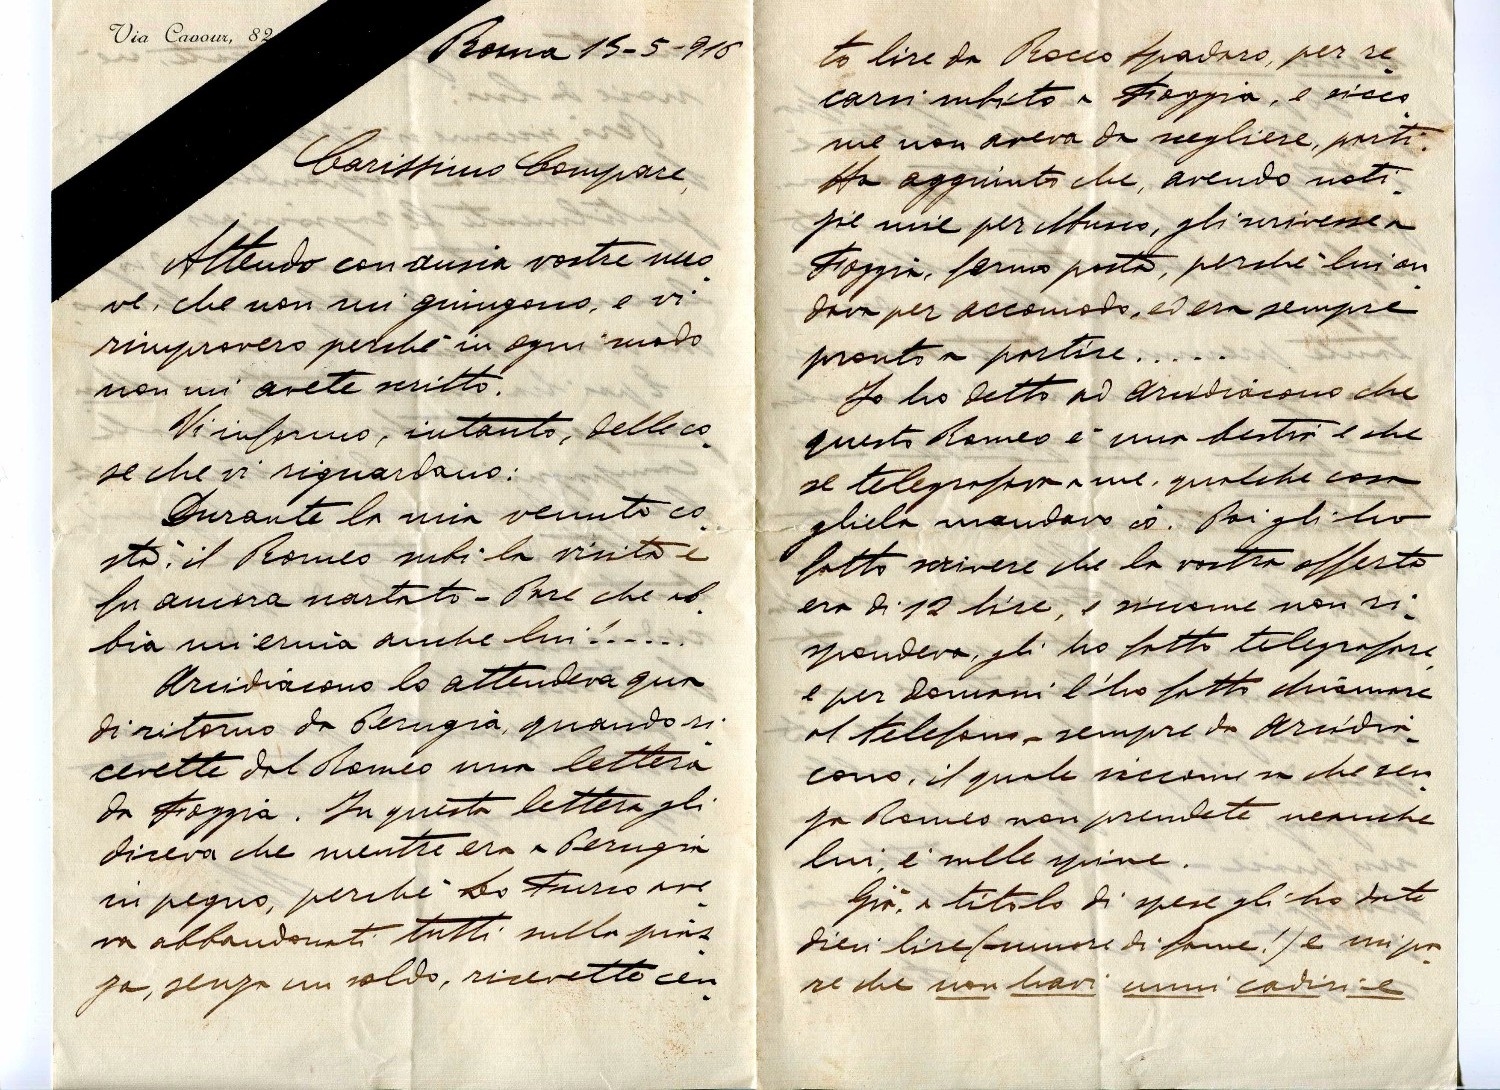 Via Cavour, 82
Roma 15-5-916
Carissimo Compare,
Attendo con ansia vostre nuo-
ve, che non mi giungono, e vi
rimprovero perchè in ogni modo
non mi avete scritto.
Vi informo, intanto, delle co-
se che vi riguardano:
Durante la mia venuta co-
stà, il Romeo subì la visita e
fu ancora scartato - Pare che ab-
bia un'ernia anche lui!.....
Arcidiacono lo attendeva qua
di ritorno da Perugia, quando ri-
cevette dal Romeo una lettera
da Foggia. In questa lettera gli
diceva che mentre era a Perugia
in pegno, perchè Lo Turco ave-
va abbandonati tutti sulla piaz-
za, senza un soldo, ricevette cen-
to lire da Rocco Spadaro, per re-
carsi subito a Foggia, e sicco-
me non aveva da scegliere, partì.
Ha aggiunto che, avendo noti-
zie mie per Musco, gli scrivesse a
Foggia, fermo posta, perchè lui an-
dava per accomodo, ed era sempre
pronto a partire.....
Io ho detto ad Arcidiacono che
questo Romeo è una bestia e che
se telegrafava a me, qualche cosa
gliela mandavo io. Poi gli ho
fatto scrivere che la vostra offerta
era di 12 lire, e siccome non ri-
spondeva, gli ho fatto telegrafare,
e per domani l'ho fatto chiamare
al telefono - sempre da Arcidia-
cono, il quale siccome sa che sen-
za Romeo non prendete neanche
lui, è sulle spine.
Già, a titolo di spese gli ho dato
dieci lire (muore di fame!) e mi pa-
re che non havi unni cadiri e